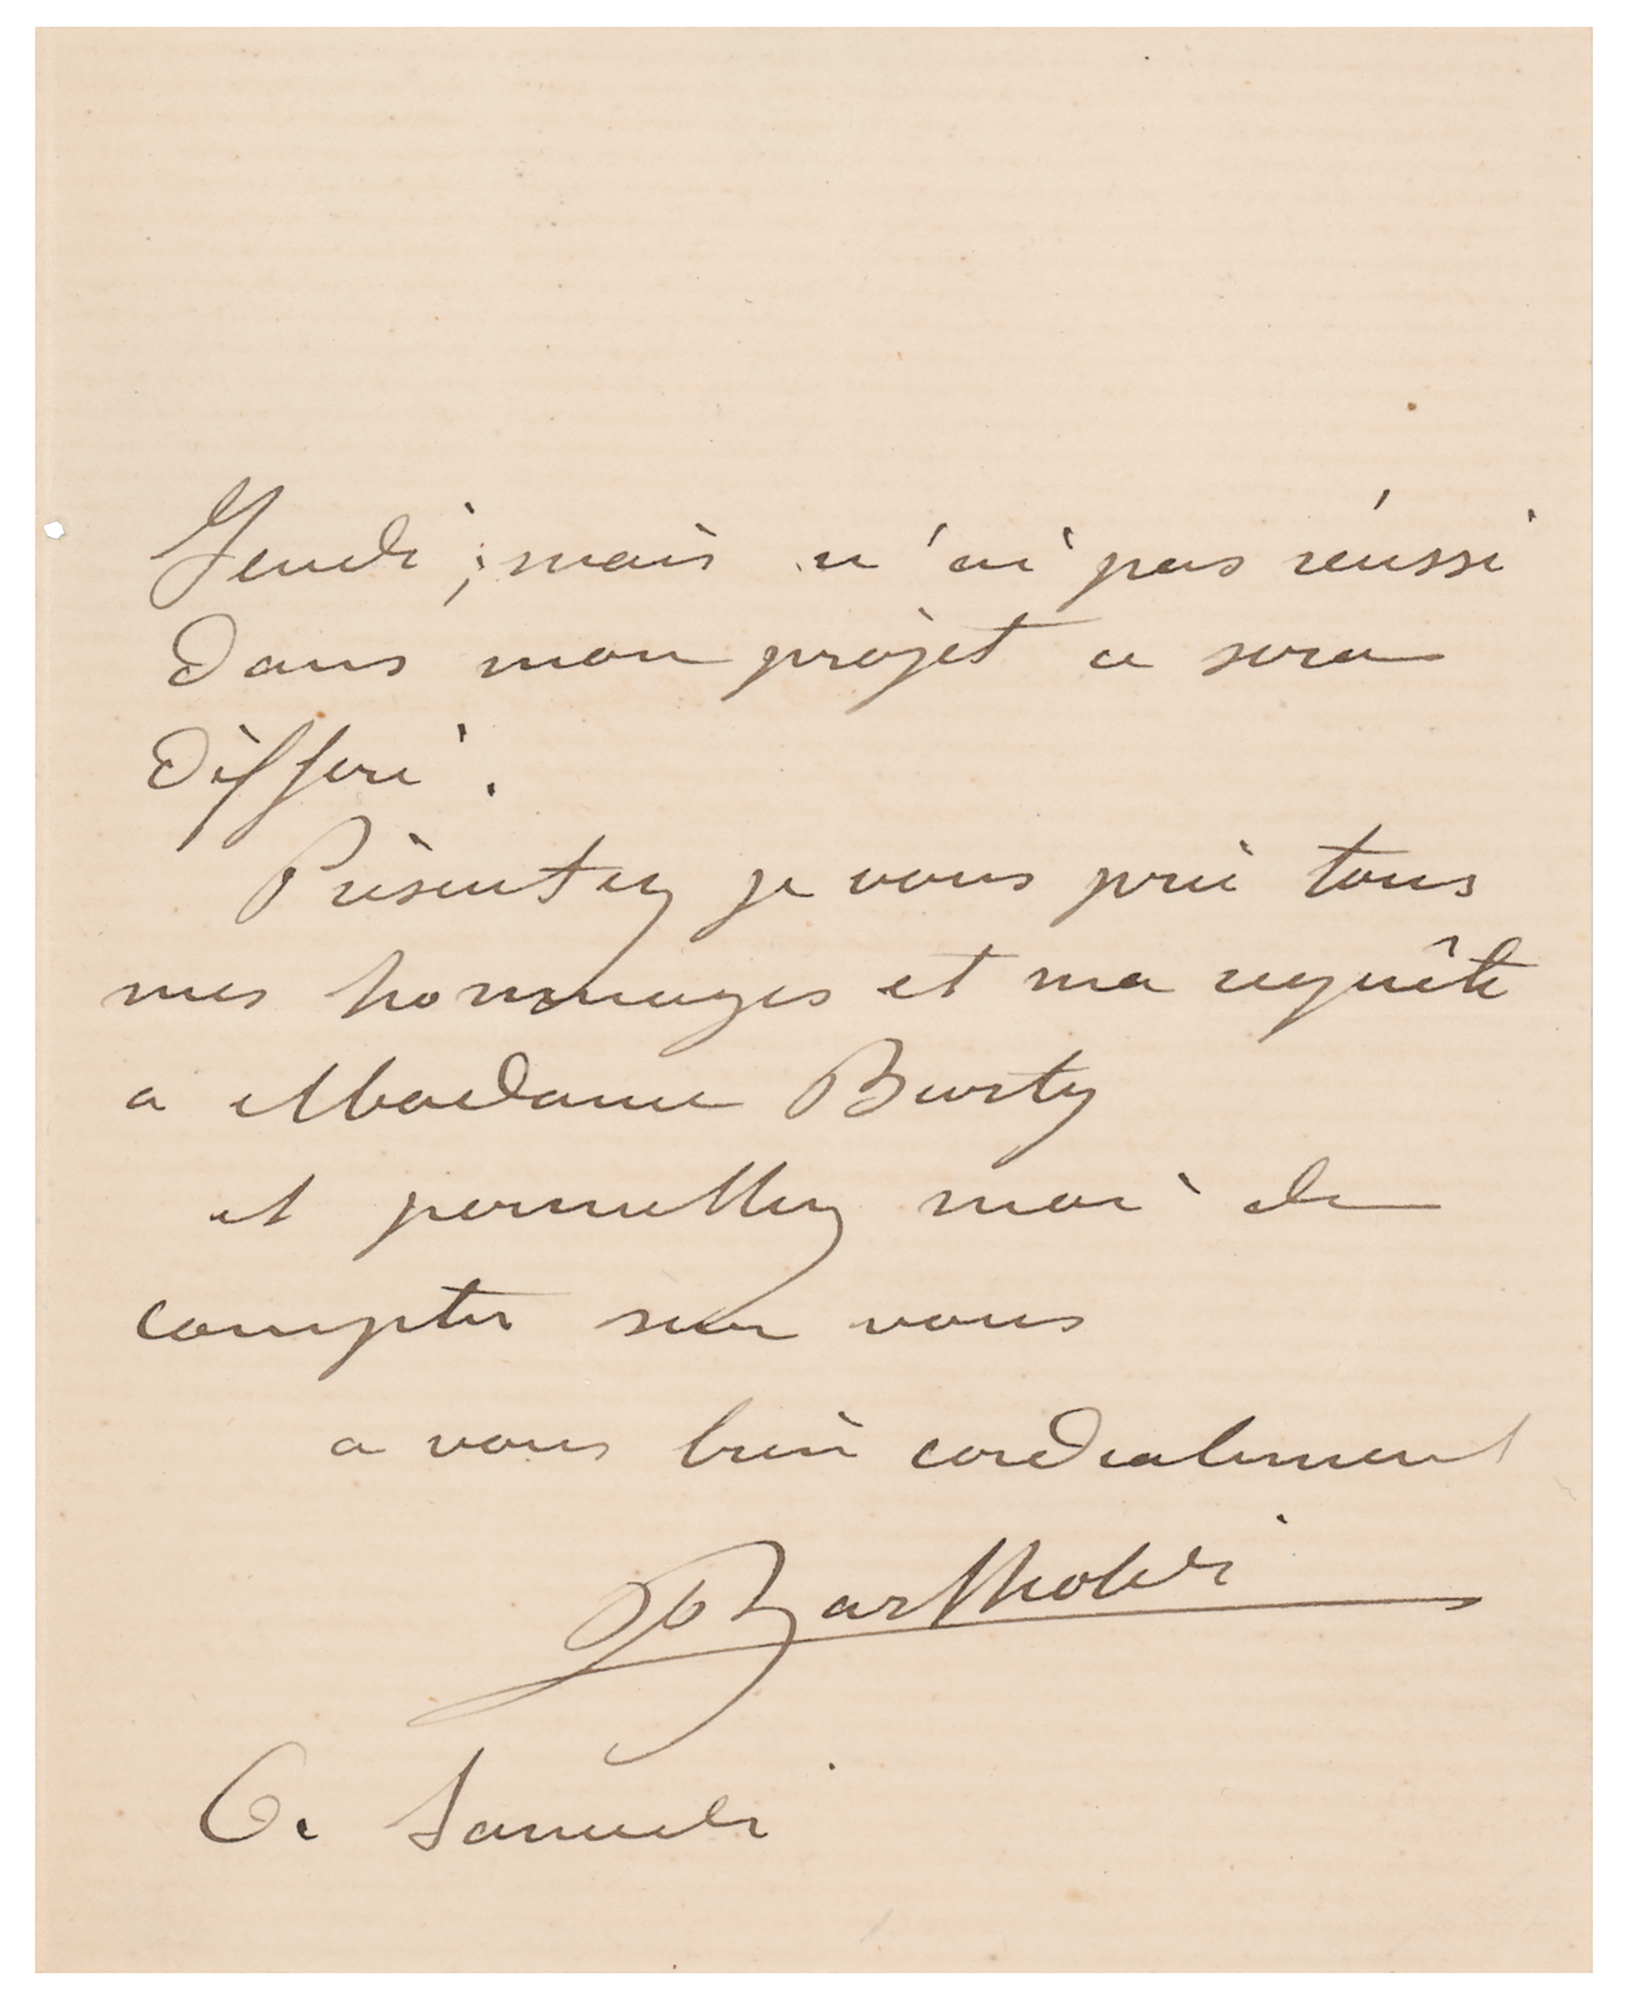 Jeudi; mais n'ai pas réussi
dans mon projet ce sera
differé.
Présentez je vous prie tous
mes hommages et ma requête
a Madame Burty
et permettez moi de
compter sur vous
a vous bien cordialement
Bartholdi
Samedi